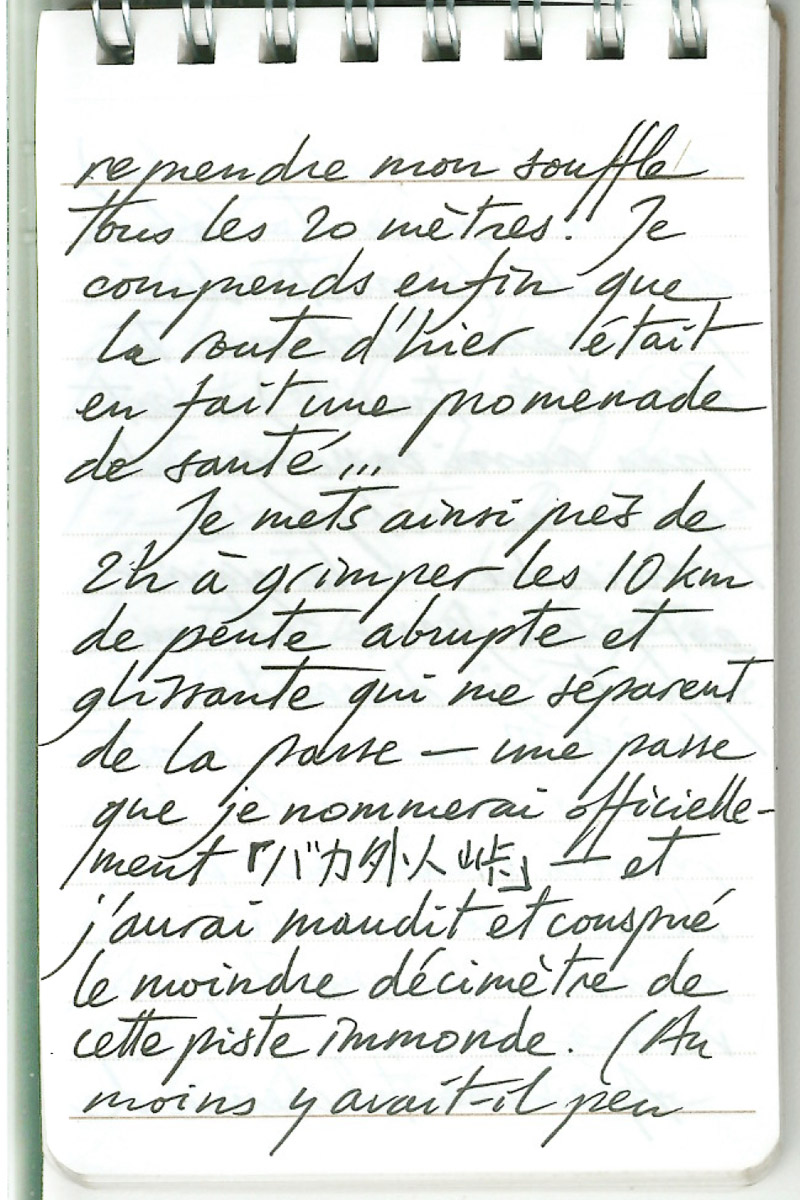 reprendre mon souffle
tous les 20 mètres. Je
comprends enfin que
la route d'hier était
en fait une promenade
de santé...
Je mets ainsi près de
2h à grimper les 10 km
de pente abrupte et
glissante qui me séparent
de la passe — une passe
que je nommerai officielle-
ment 『バカ外人峠』 — et
j'aurai maudit et conspué
le moindre décimètre de
cette piste immonde. (Au
moins y avait-il peu